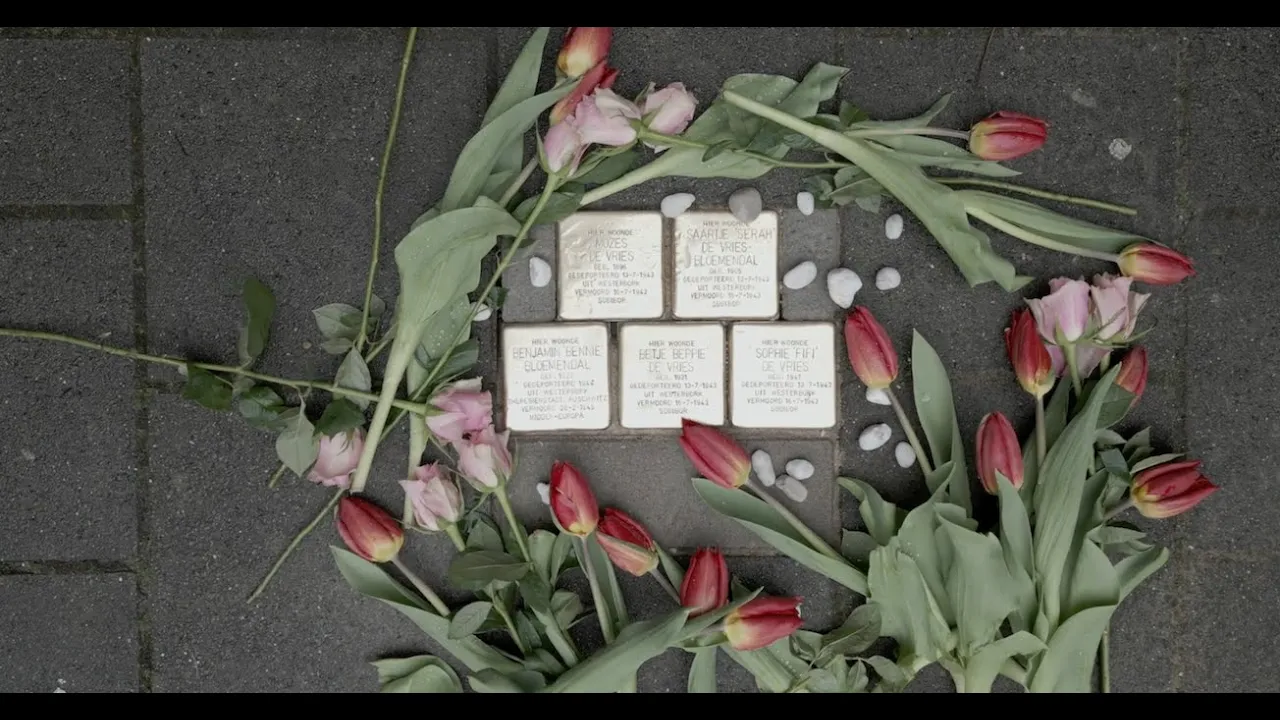 HIER WOONDE
MOZES
DE VRIES
GEB. 1896
GEDEPORTEERD 13-7-1943
UIT WESTERBORK
VERMOORD 16-7-1943
SOBIBOR
HIER WOONDE
SAARTJE 'SERAH'
DE VRIES-
BLOEMENDAL
GEB.
GEDEPORTEERD 13-7-1943
UIT WESTERBORK
VERMOORD 16-7-1943
SOBIBOR
HIER WOONDE
BENJAMIN 'BENNIE'
BLOEMENDAL
GEB.
GEDEPORTEERD
UIT WESTERBORK
THERESIENSTADT, AUSCHWITZ
VERMOORD 28-2-1945
MIDDEN-EUROPA
HIER WOONDE
BETJE 'BEPPIE'
DE VRIES
GEB. 1931
GEDEPORTEERD 13-7-1943
UIT WESTERBORK
VERMOORD 16-7-1943
SOBIBOR
HIER WOONDE
SOPHIE 'FIFI'
DE VRIES
GEB. 1941
GEDEPORTEERD 13-7-1943
UIT WESTERBORK
VERMOORD 16-7-1943
SOBIBOR